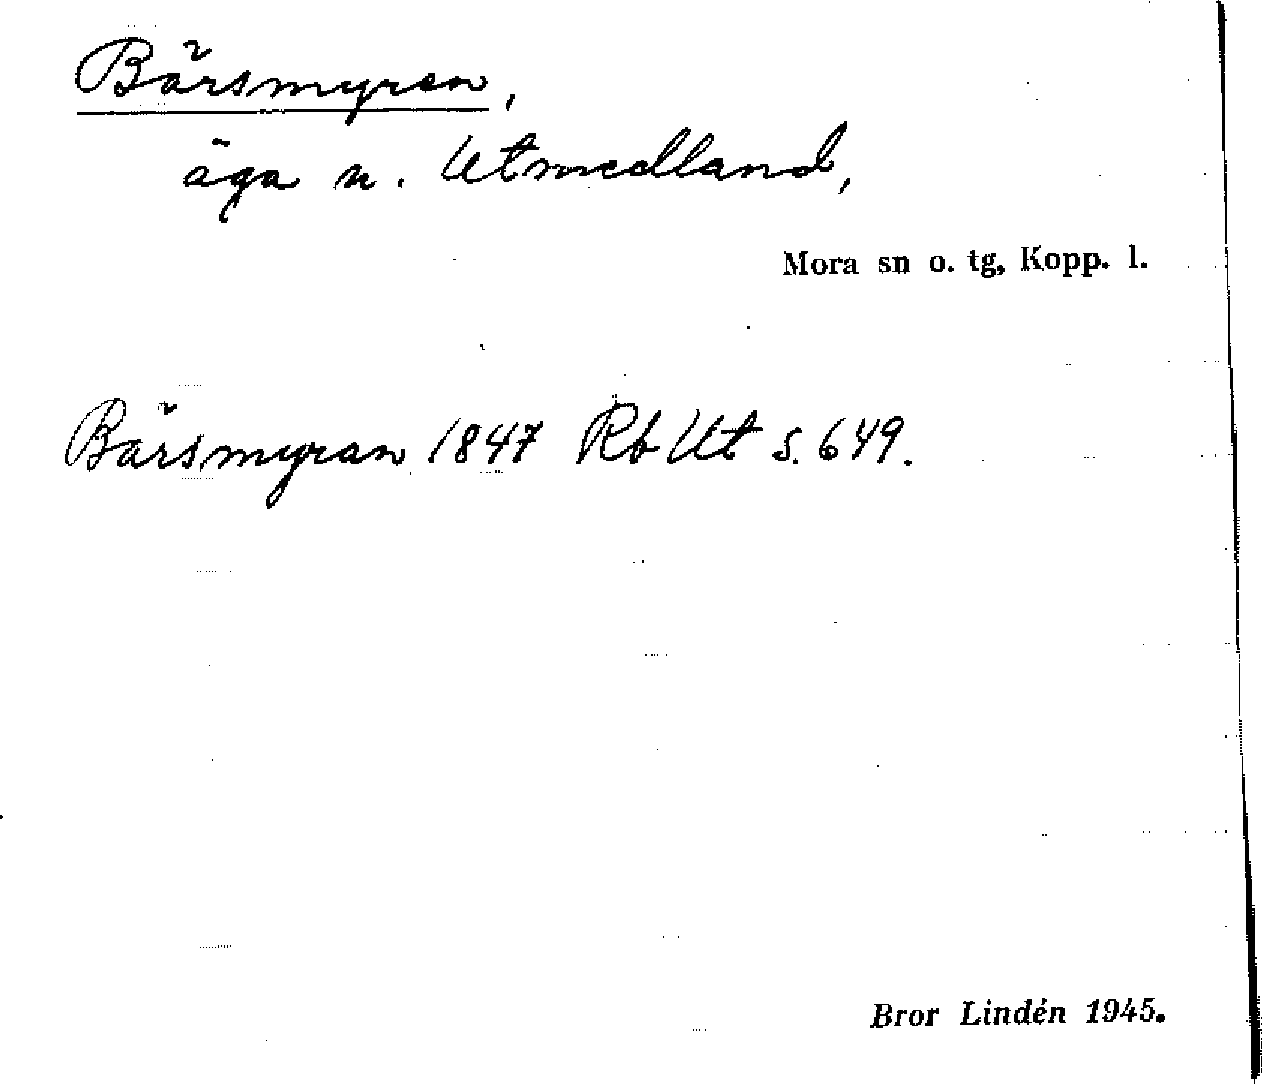 Bärsmyren,
äga n. Utmedland,
Mora sn o. tg, Kopp. l.
Bärsmyran 1847 Rb Ut s. 649.
Bror Lindén 1945.